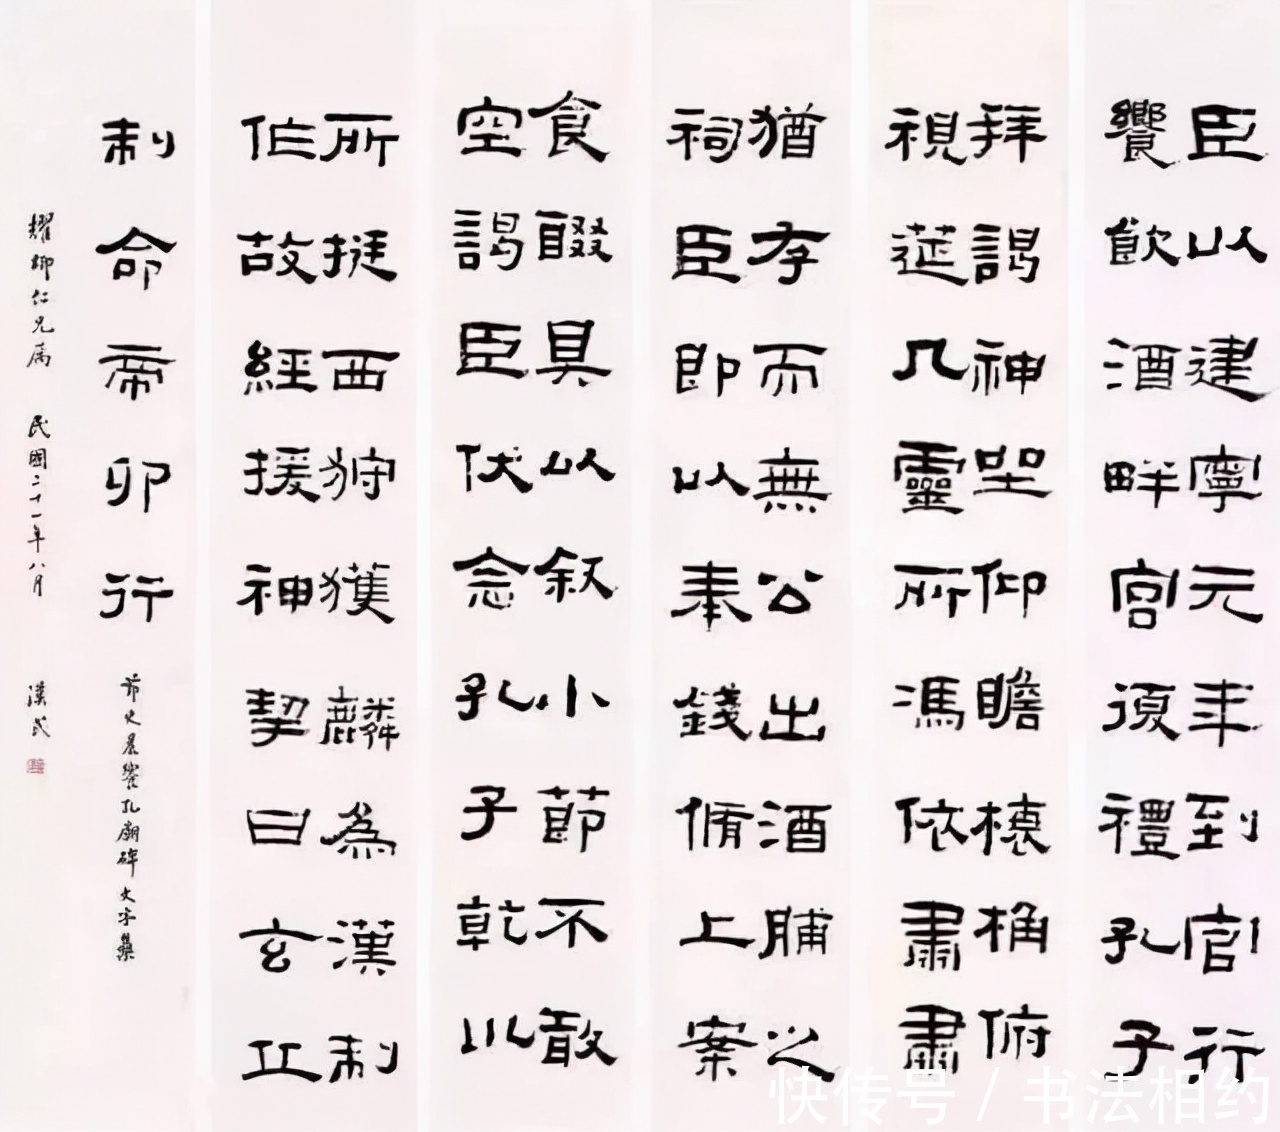 臣以建寧元年到官行
饗飲酒畔宮復禮孔子
拜謁神坐仰瞻榱桷俯
視筵几靈所馮依肅肅
猶存而無公出酒脯之
祠臣即以奉錢脩上案
食醊具以叙小節不敢
空謁臣伏念孔子乾川
所挺西狩獲麟為漢制
作故經援神契曰玄丘
制命帝卯行
節史晨饗孔廟碑文字集
耀卿仁兄属 民國二十一年八月 漢民
快传号 / 书法相约